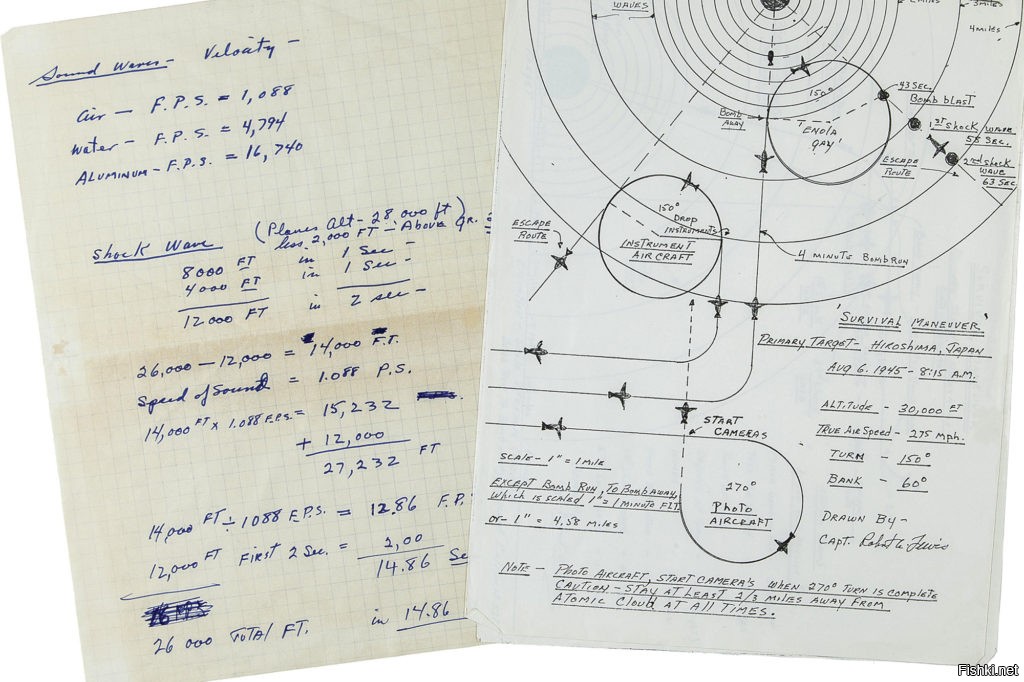 Sound Waves - Velocity -
Air - F.P.S. = 1,088
Water - F.P.S. = 4,794
ALUMINUM - F.P.S. = 16,740
Shock Wave
(Planes Alt - 28,000 ft)
less 2,000 FT - Above GR.
8000 FT in 1 Sec -
4000 FT in 1 Sec -
12000 FT in 2 sec -
26,000 - 12,000 = 14,000 F.T.
Speed of Sound = 1.088 P.S.
14,000 FT x 1.088 F.P.S. = 15,232
+ 12,000
27,232 FT
14,000 FT ÷ 1088 F.P.S. = 12.86 F.P.
12,000 FT First 2 Sec. = 2,00
14.86 Se
26 000 TOTAL FT. in 14.86
WAVES
2 MILES
3 MILES
4 MILES
43 SEC.
Bomb blast
150°
BOMB
AWAY
'ENOLA
GAY'
1ST Shock WAVE
58 SEC.
2nd Shock
WAVE
63 SEC.
ESCAPE
ROUTE
150°
DROP
INSTRUMENTS
INSTRUMENT
AIRCRAFT
ESCAPE
ROUTE
4 MINUTE BOMB RUN
'SURVIVAL MANEUVER'
PRIMARY TARGET - HIROSHIMA, JAPAN
AUG 6. 1945 - 8:15 A.M.
ALTITUDE - 30,000 FT
TRUE AIR SPEED - 275 mph.
TURN - 150°
BANK - 60°
START
CAMERAS
SCALE - 1" = 1 MILE
EXCEPT BOMB RUN, TO BOMB AWAY,
Which is scaled 1" = 1 MINUTE FLT.
or - 1" = 4.58 MILES
270°
Photo
AIRCRAFT
DRAWN BY -
CAPT. Robert A. Lewis
NOTE - PHOTO AIRCRAFT, START CAMERA'S WHEN 270° TURN IS COMPLETE
CAUTION - STAY AT LEAST 2/3 MILES AWAY FROM
ATOMIC CLOUD AT ALL TIMES.
Fishki.net